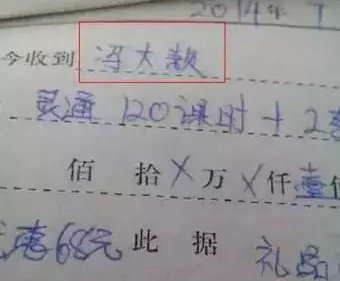 2014年
今收到 冯大款
灵通 120课时 + 2
佰 拾 X 万 X 仟 壹
惠68元 此 据 礼品